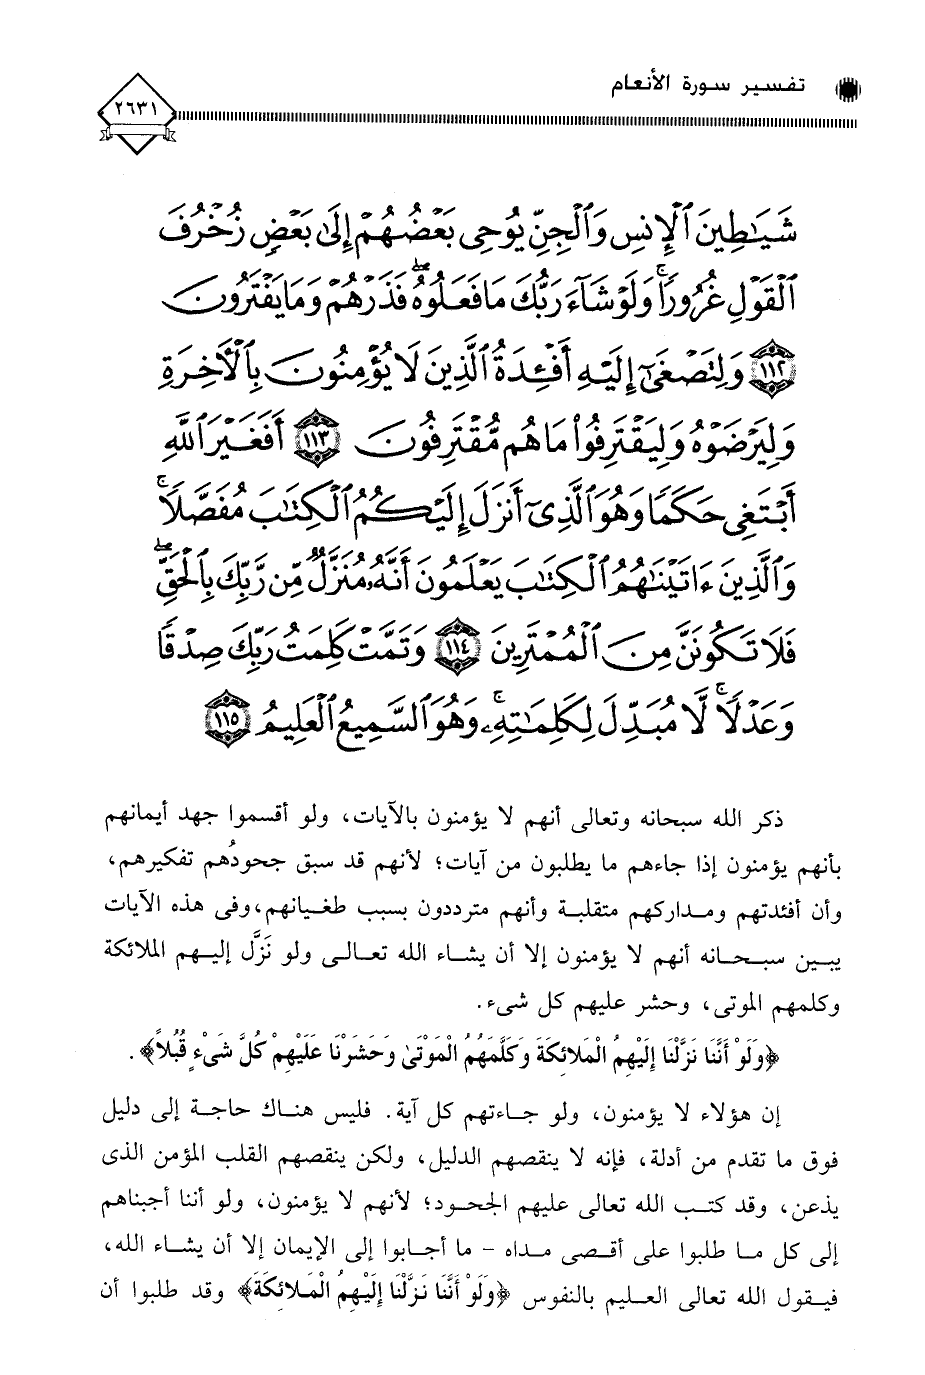 تفسير سورة الأنعام
٢٦٣١
شَيَٰطِينَ ٱلْإِنسِ وَٱلْجِنِّ يُوحِى بَعْضُهُمْ إِلَىٰ بَعْضٍ زُخْرُفَ
ٱلْقَوْلِ غُرُورًا ۚ وَلَوْ شَآءَ رَبُّكَ مَا فَعَلُوهُ ۖ فَذَرْهُمْ وَمَا يَفْتَرُونَ
١١٢ وَلِتَصْغَىٰٓ إِلَيْهِ أَفْـِٔدَةُ ٱلَّذِينَ لَا يُؤْمِنُونَ بِٱلْأَخِرَةِ
وَلِيَرْضَوْهُ وَلِيَقْتَرِفُوا۟ مَا هُم مُّقْتَرِفُونَ ١١٣ أَفَغَيْرَ ٱللَّهِ
أَبْتَغِى حَكَمًا وَهُوَ ٱلَّذِىٓ أَنزَلَ إِلَيْكُمُ ٱلْكِتَٰبَ مُفَصَّلًا ۚ
وَٱلَّذِينَ ءَاتَيْنَٰهُمُ ٱلْكِتَٰبَ يَعْلَمُونَ أَنَّهُۥ مُنَزَّلٌ مِّن رَّبِّكَ بِٱلْحَقِّ ۖ
فَلَا تَكُونَنَّ مِنَ ٱلْمُمْتَرِينَ ١١٤ وَتَمَّتْ كَلِمَتُ رَبِّكَ صِدْقًا
وَعَدْلًا ۚ لَّا مُبَدِّلَ لِكَلِمَٰتِهِۦ ۚ وَهُوَ ٱلسَّمِيعُ ٱلْعَلِيمُ ١١٥
ذكر الله سبحانه وتعالى أنهم لا يؤمنون بالآيات، ولو أقسموا جهد أيمانهم
بأنهم يؤمنون إذا جاءهم ما يطلبون من آيات؛ لأنهم قد سبق جحودُهم تفكيرهم،
وأن أفئدتهم ومداركهم متقلبة وأنهم مترددون بسبب طغيانهم،وفى هذه الآيات
يبين سبحانه أنهم لا يؤمنون إلا أن يشاء الله تعالى ولو نَزَّل إليهم الملائكة
وكلمهم الموتى، وحشر عليهم كل شىء.
﴿وَلَوْ أَنَّنَا نَزَّلْنَا إِلَيْهِمُ الْمَلائِكَةَ وَكَلَّمَهُمُ الْمَوْتَىٰ وَحَشَرْنَا عَلَيْهِمْ كُلَّ شَىْءٍ قُبُلاً﴾.
إن هؤلاء لا يؤمنون، ولو جاءتهم كل آية. فليس هناك حاجة إلى دليل
فوق ما تقدم من أدلة، فإنه لا ينقصهم الدليل، ولكن ينقصهم القلب المؤمن الذى
يذعن، وقد كتب الله تعالى عليهم الجحود؛ لأنهم لا يؤمنون، ولو أننا أجبناهم
إلى كل ما طلبوا على أقصى مداه - ما أجابوا إلى الإيمان إلا أن يشاء الله،
فيقول الله تعالى العليم بالنفوس ﴿وَلَوْ أَنَّنَا نَزَّلْنَا إِلَيْهِمُ الْمَلائِكَةَ﴾ وقد طلبوا أن